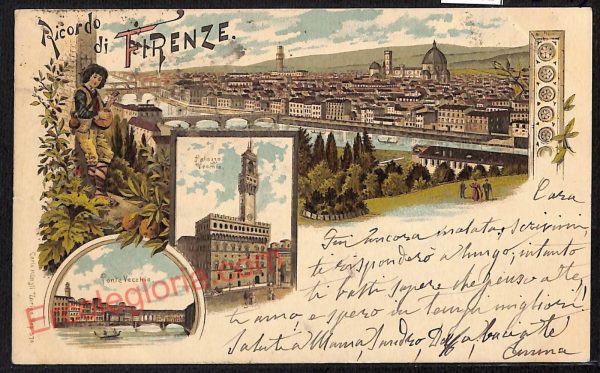 Ricordo
di FIRENZE.
Palazzo
Vecchio
Ponte Vecchio
Cara
Sei ancora malata, scrivimi,
ti risponderò a lungo, intanto
ti basti sapere che penso a te,
ti amo e spero in tempi migliori!
Saluta Mama, Sandro,
baciate
Emma